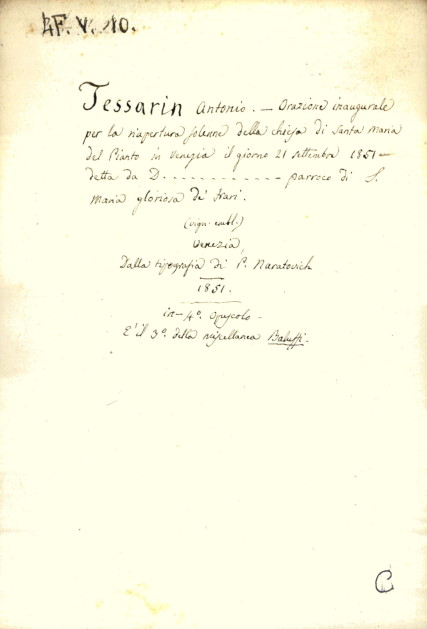 4F. V. 10.
Tessarin Antonio. — Orazione inaugurale
per la riapertura solenne della chiesa di Santa Maria
del Pianto in Venezia il giorno 21 settembre 1851 —
detta da D. - - - - - - - - - - - - parroco di S.
Maria gloriosa de' Frari.
(vign. embl.)
Venezia,
Dalla tipografia di P. Naratovich
1851.
in-4°. Opuscolo -
E' il 3°. della miscellanea Baluffi.
C